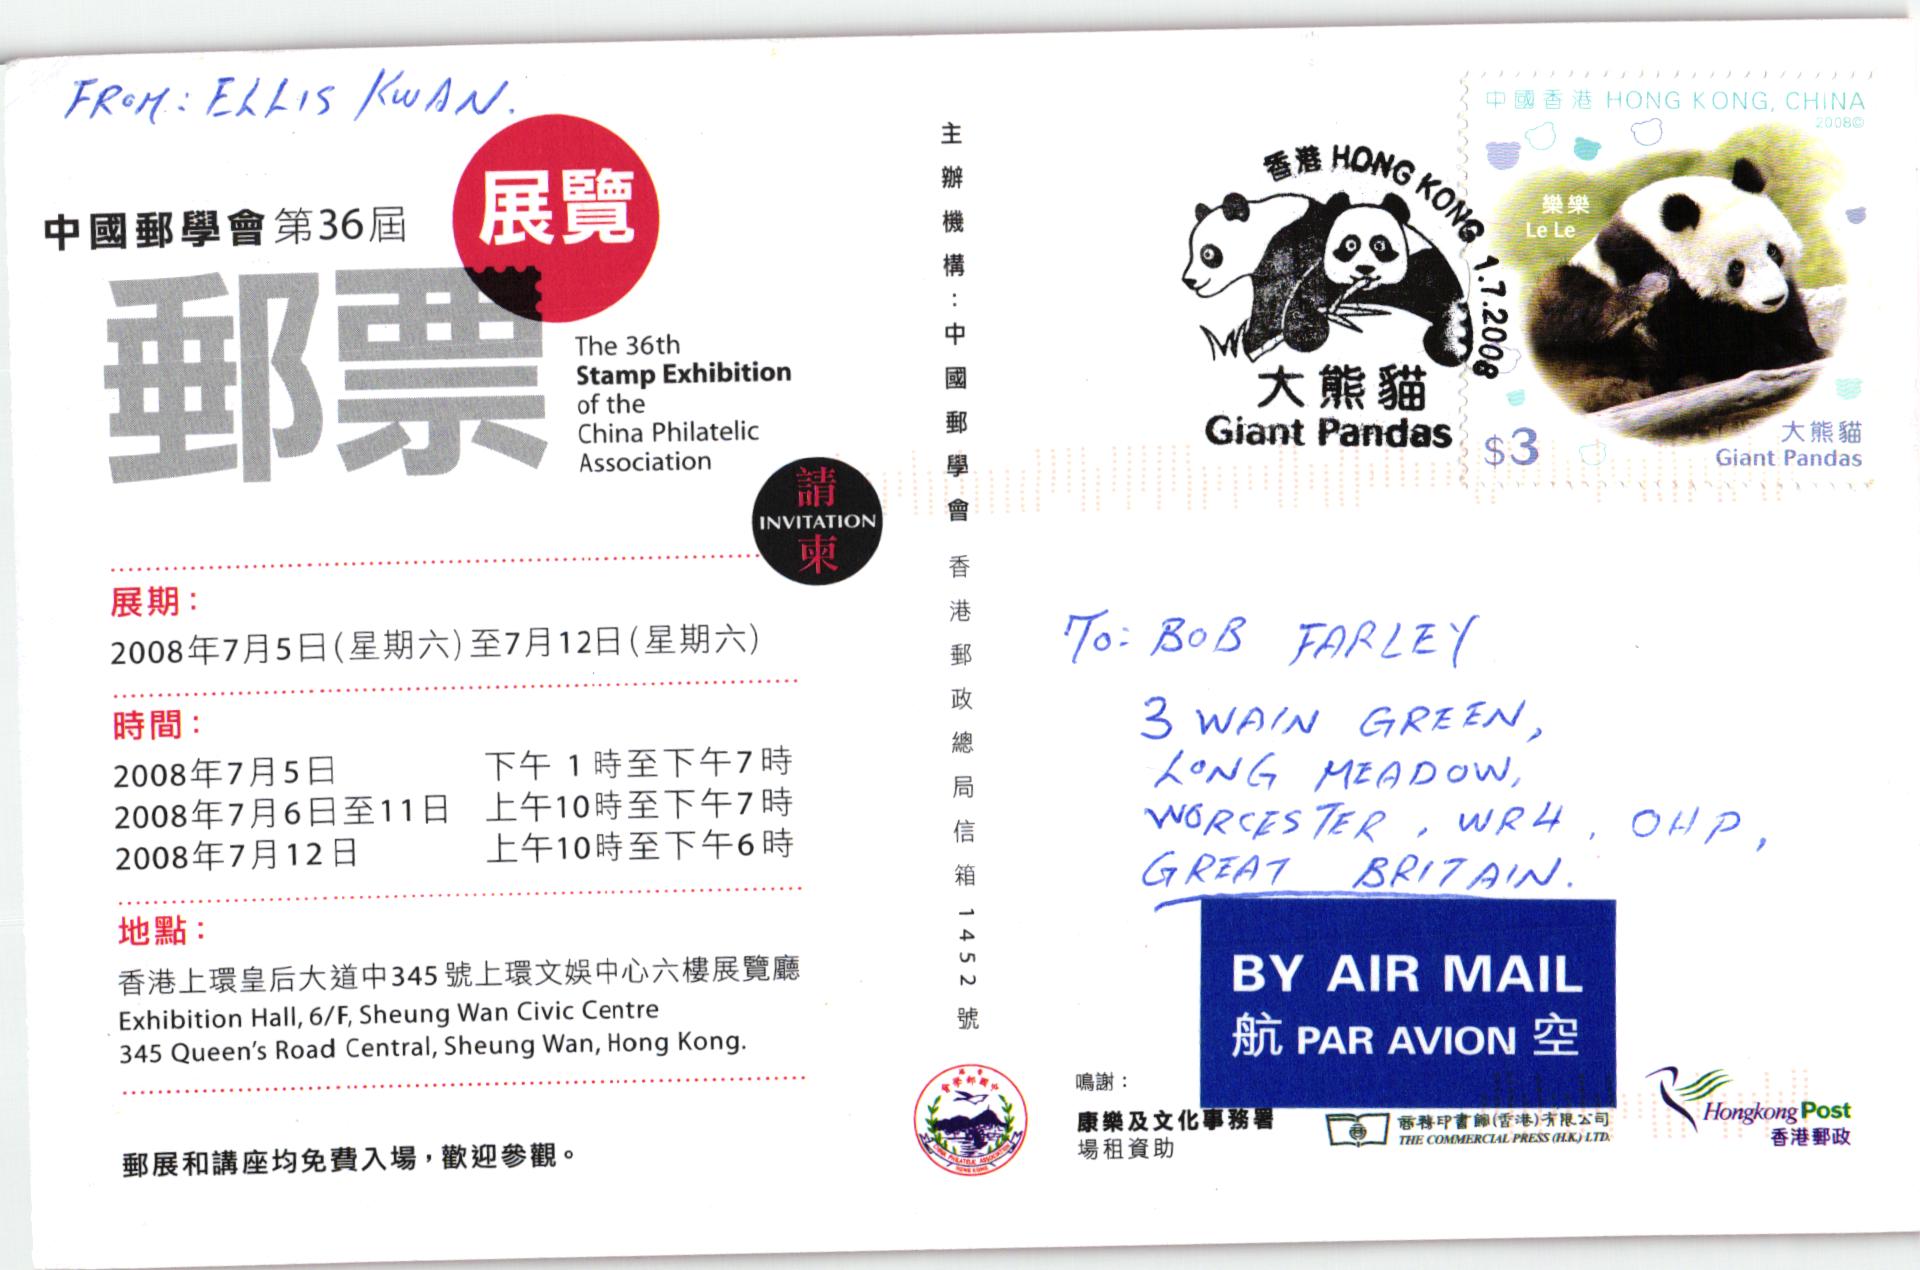 FROM: ELLIS KWAN.
中國郵學會第36屆
展覽
郵票
The 36th
Stamp Exhibition
of the
China Philatelic
Association
請
INVITATION
柬
展期：
2008年7月5日(星期六)至7月12日(星期六)
時間：
2008年7月5日 下午 1 時至下午7時
2008年7月6日至11日 上午10時至下午7時
2008年7月12日 上午10時至下午6時
地點：
香港上環皇后大道中345號上環文娛中心六樓展覽廳
Exhibition Hall, 6/F, Sheung Wan Civic Centre
345 Queen's Road Central, Sheung Wan, Hong Kong.
郵展和講座均免費入場，歡迎參觀。
主辦機構：中國郵學會 香港郵政總局信箱1452號
香港 HONG KONG 1.7.2008
大熊貓
Giant Pandas
中國香港 HONG KONG, CHINA
2008©
樂樂
Le Le
$3
大熊貓
Giant Pandas
To: BOB FARLEY
3 WAIN GREEN,
LONG MEADOW,
WORCESTER, WR4, OHP,
GREAT BRITAIN.
BY AIR MAIL
航 PAR AVION 空
鳴謝：
康樂及文化事務署
場租資助
商務印書館(香港)有限公司
THE COMMERCIAL PRESS (H.K.) LTD.
Hongkong Post
香港郵政
香港
中國郵學會
CHINA PHILATELIC ASSOCIATION
HONG KONG